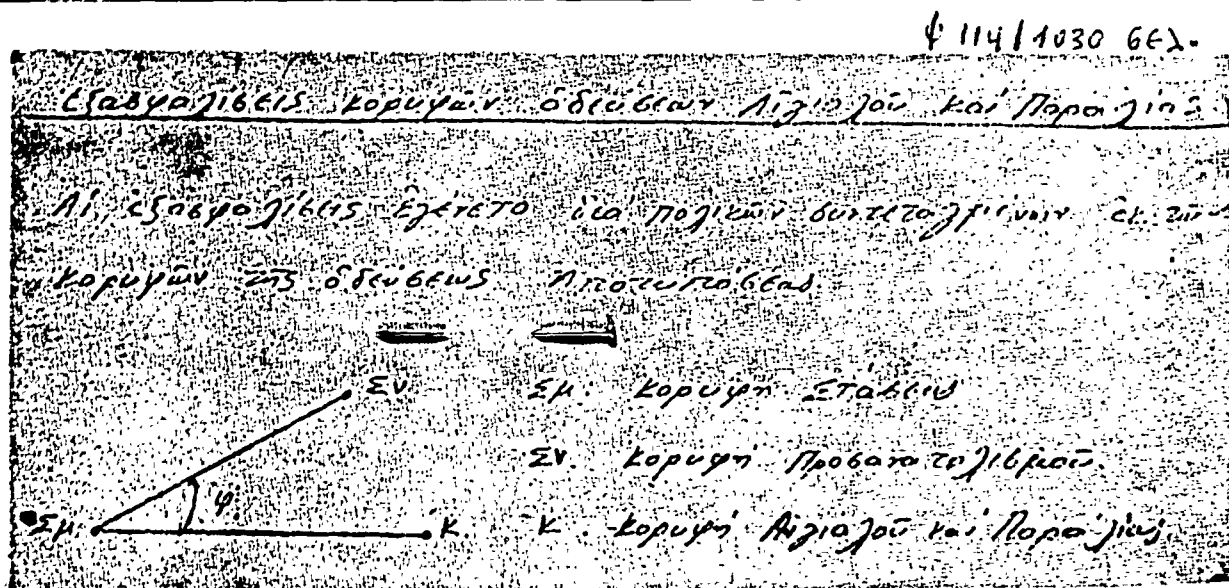 ψ 114/1030 σελ.
Ἐξασφαλίσεις κορυφῶν ὁδεύσεων Αἰγιαλοῦ καὶ Παραλίας
Αἱ ἐξασφαλίσεις ἐγένετο διὰ πολικῶν συντεταγμένων ἐκ τῶν
κορυφῶν τῆς ὁδεύσεως Ἀποτυπώσεως.
Σν Σμ. κορυφὴ Στάσεως
Σν. κορυφὴ Προσανατολισμοῦ.
φ.
Σμ. Κ. Κ. κορυφὴ Αἰγιαλοῦ καὶ Παραλίας.